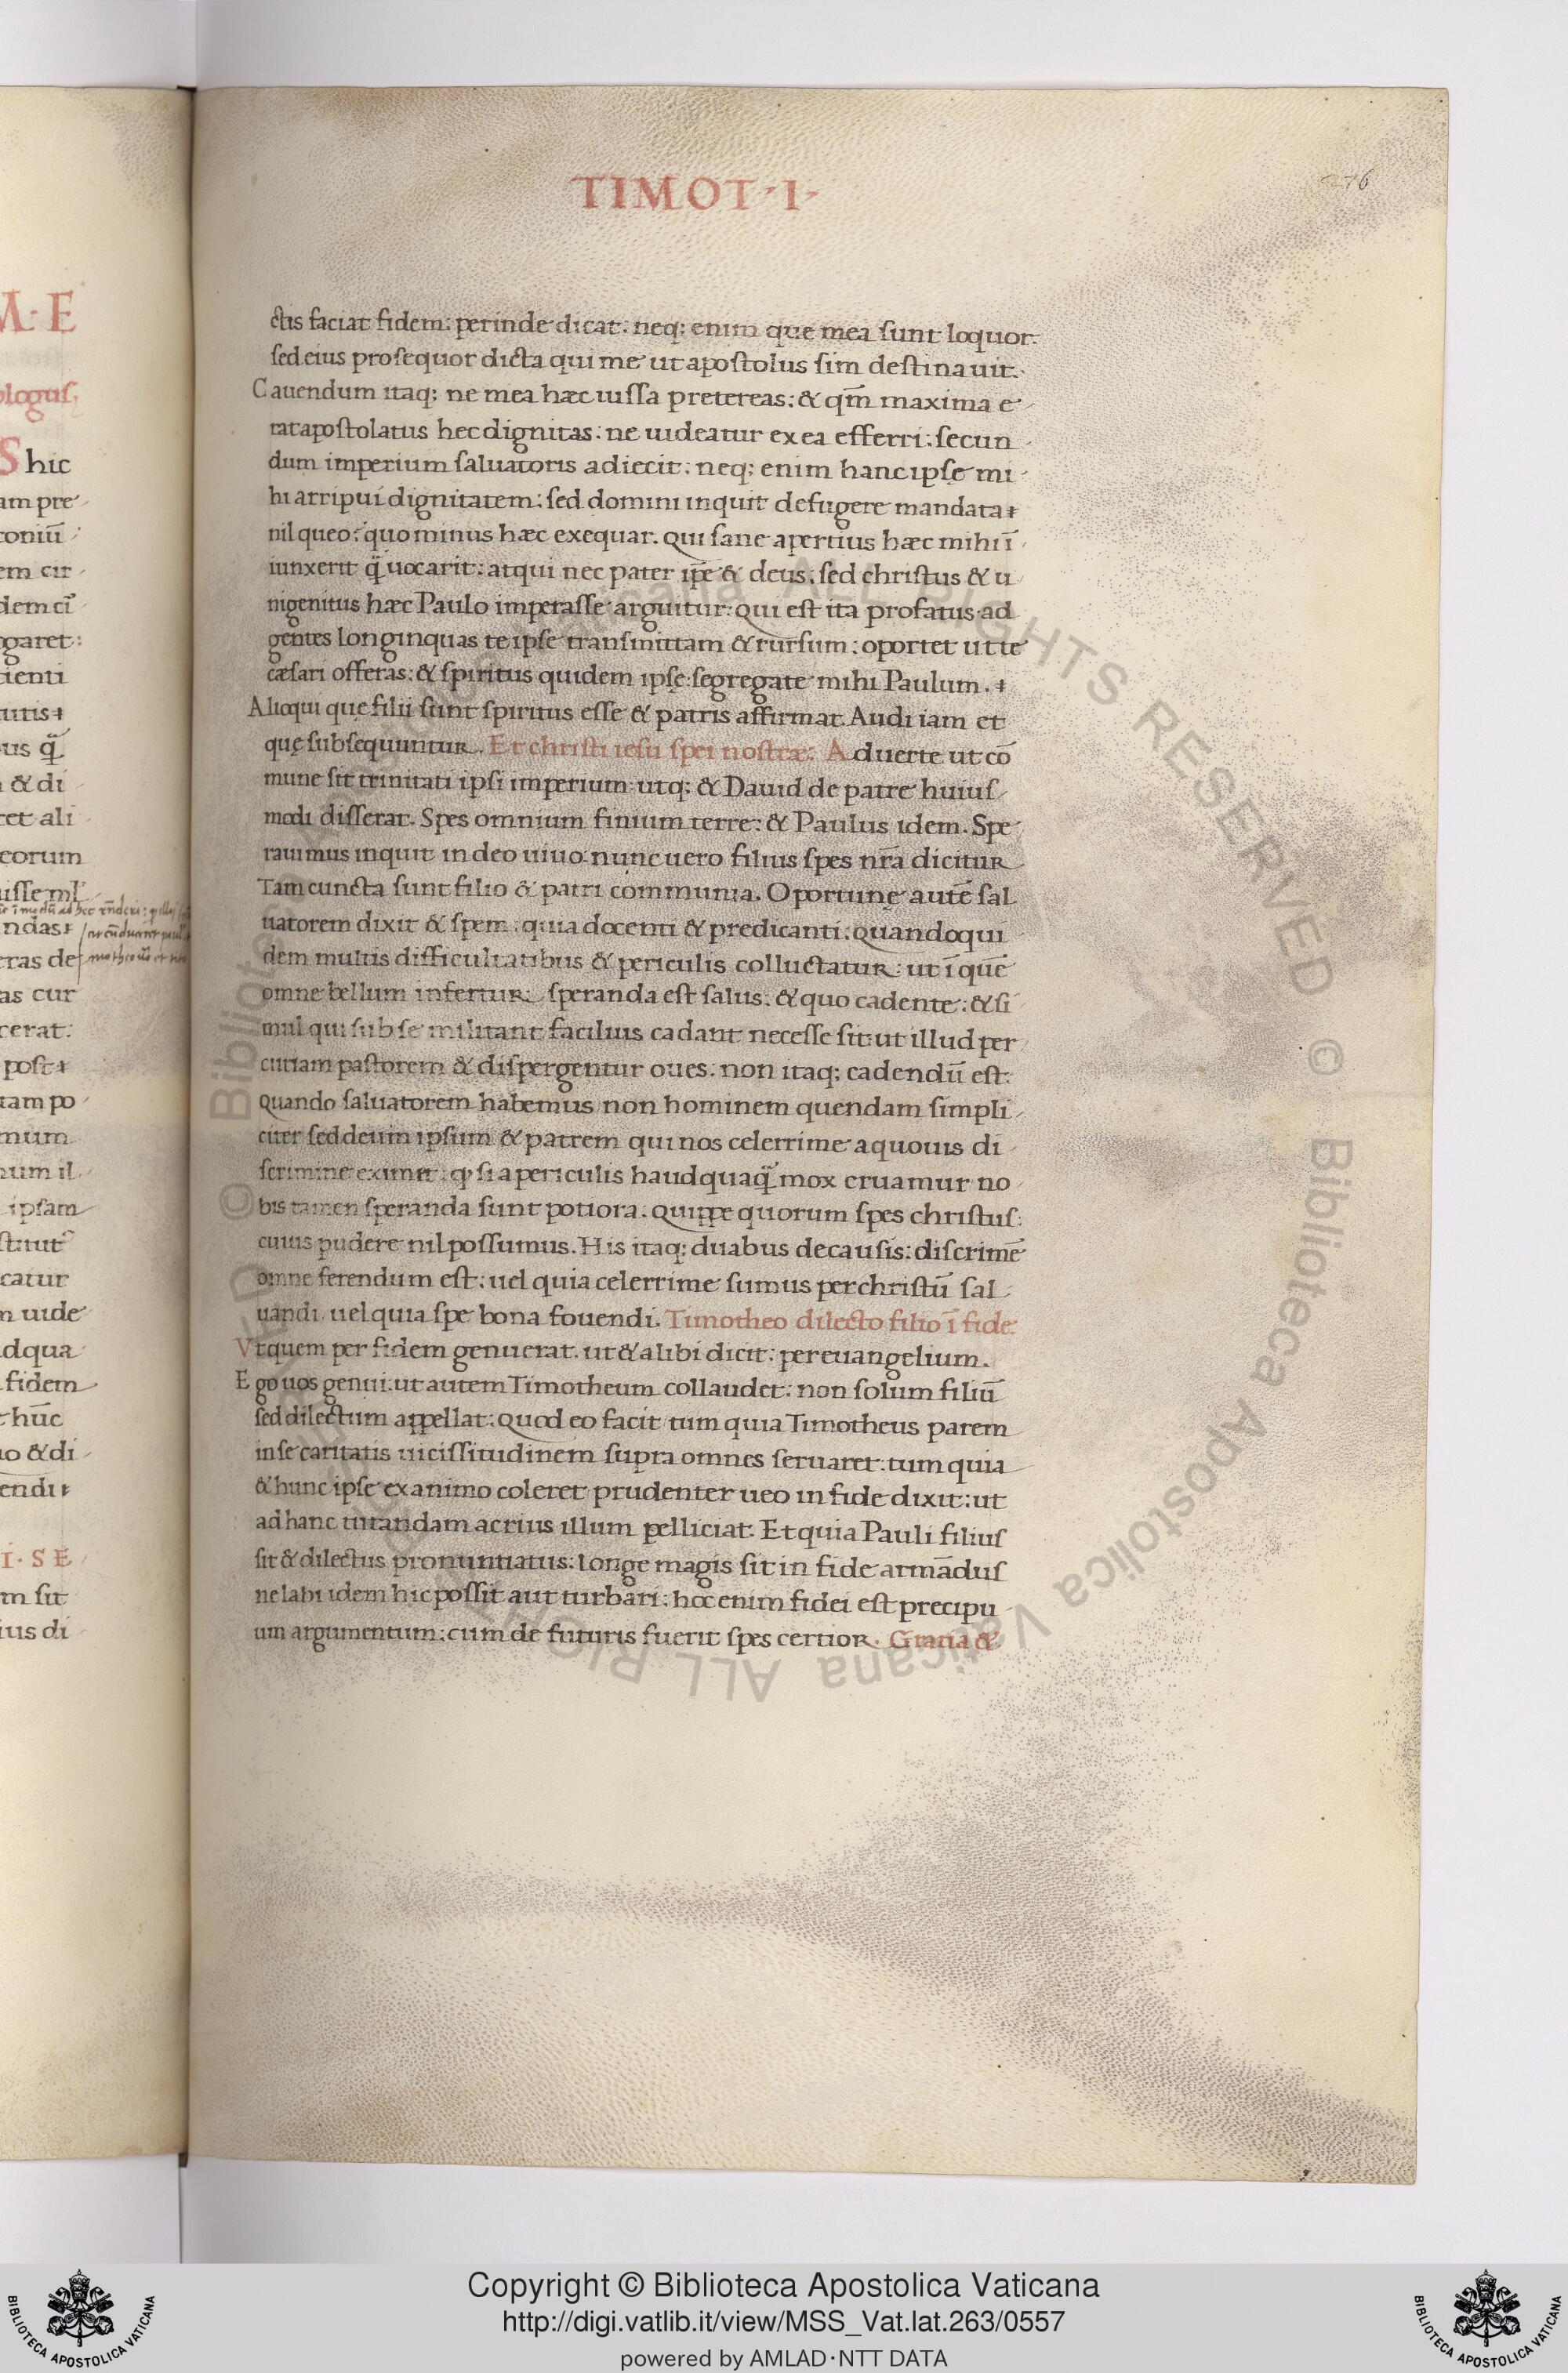 TIMOT·I·
276
ctis faciat fidem: perinde dicat: neq; enim que mea sunt loquor.
sed eius prosequor dicta qui me ut apostolus sim destinauit.
Cauendum itaq; ne mea hæc iussa pretereas: & qm̄ maxima e
rat apostolatus hec dignitas: ne uideatur ex ea efferri: secun
dum imperium saluatoris adiecit: neq; enim hanc ipse mi
hi arripui dignitatem: sed domini inquit defugere mandata
nil queo: quo minus hæc exequar. Qui sane apertius hæc mihi ī
iunxerit q̄ uocarit: atqui nec pater ip̄e & deus: sed christus & u
nigenitus hæc Paulo imperasse arguitur: Qui est ita profatus ad
gentes longinquas te ipse transmittam & rursum: oportet ut te
cæsari offeras: & spiritus quidem ipse: segregate mihi Paulum.
Alioqui quę filii sunt spiritus esse & patris affirmat. Audi iam et
quę subsequuntur. Et christi iesu spei nostræ: Aduerte ut cō
mune sit trinitati ipsi imperium: utq; & Dauid de patre huius
modi disserat. Spes omnium finium terre: & Paulus idem. Spe
rauimus inquit in deo uiuo: nunc uero filius spes nr̄a dicitur
Tam cuncta sunt filio & patri communia. Oportune autē sal
uatorem dixit & spem: quia docenti & predicanti: quandoqui
dem multis difficultatibus & periculis colluctatur: ut ī quē
omne bellum infertur: speranda est salus: & quo cadente: & si
mul qui sub se militant facilius cadant necesse sit: ut illud per
cutiam pastorem & dispergentur oues: non itaq; cadendū est:
Quando saluatorem habemus non hominem quendam simpli
citer sed deum ipsum & patrem qui nos celerrime a quouis di
scrimine eximit: q, si a periculis haudquaq̄ mox eruamur no
bis tamen speranda sunt potiora. Quippe quorum spes christus:
cuius pudere nil possumus. His itaq; duabus de causis: discrimē
omne ferendum est: uel quia celerrime sumus per christū sal
uandi uel quia spe bona fouendi. Timotheo dilecto filio ī fide:
Vt quem per fidem genuerat. ut & alibi dicit: per euangelium.
Ego uos genui: ut autem Timotheum collaudet: non solum filiū
sed dilectum appellat: Quod eo facit tum quia Timotheus parem
in se caritatis uicissitudinem supra omnes seruaret: tum quia
& hunc ipse ex animo coleret prudenter ueo in fide dixit: ut
ad hanc tutandam acrius illum pelliciat. Et quia Pauli filius
sit & dilectus pronuntiatus: longe magis sit in fide armādus
ne labi idem hic possit aut turbari: hoc enim fidei est precipu
um argumentum: cum de futuris fuerit spes certior. Gratia &
Copyright © Biblioteca Apostolica Vaticana
http://digi.vatlib.it/view/MSS_Vat.lat.263/0557
powered by AMLAD·NTT DATA